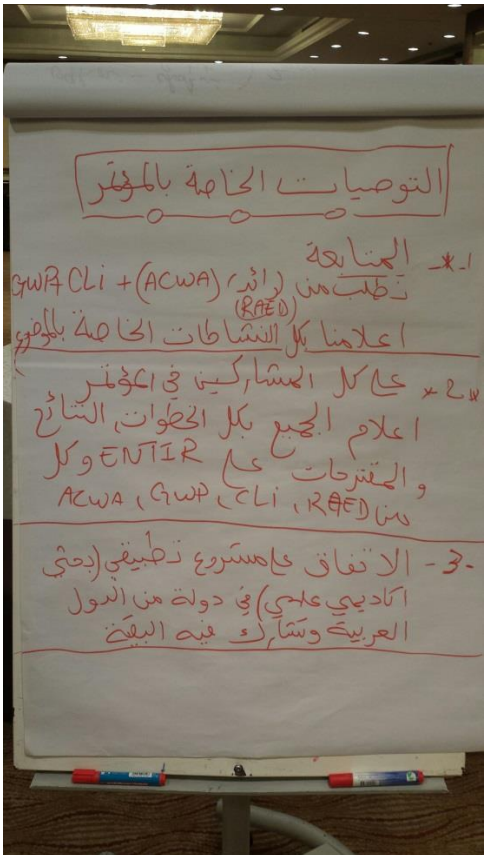 التوصيات الخاصة بالمؤتمر
1-*- المتابعة
نطلب من (رائد، ACWA) + GWP, CLi
(RAED)
اعلامنا بكل النشاطات الخاصة بالموضوع
*2* على كل المشاركين في المؤتمر
اعلام الجميع بكل الخطوات، النتائج
والمقترحات على ENTIR وكل
من RAED، CLi، GWP، ACWA
-3- الاتفاق على مشروع تطبيقي (بحثي
اكاديمي علمي) في دولة من الدول
العربية وتشارك فيه البقية